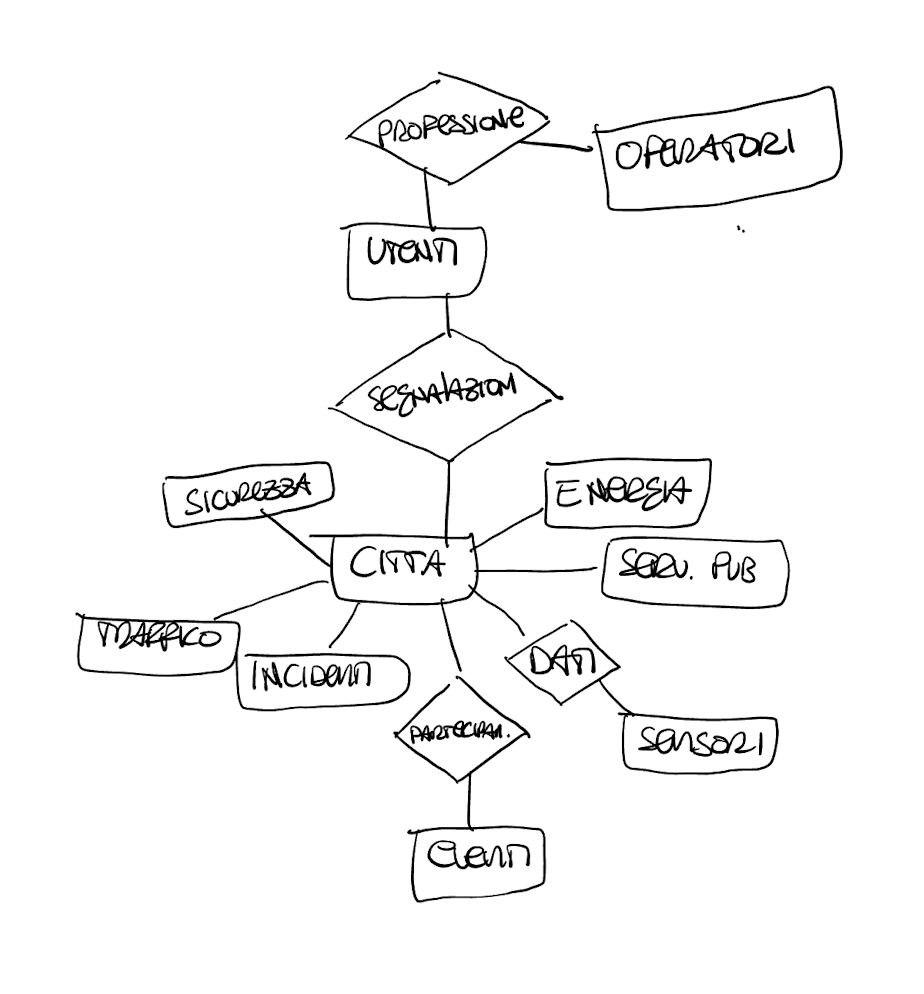 PROFESSIONE
OPERATORI
UTENTI
SEGNALAZIONI
SICUREZZA
ENERGIA
CITTA
SERV. PUB
TRAFFICO
INCIDENTI
DATI
PARTECIPAZ.
SENSORI
EVENTI